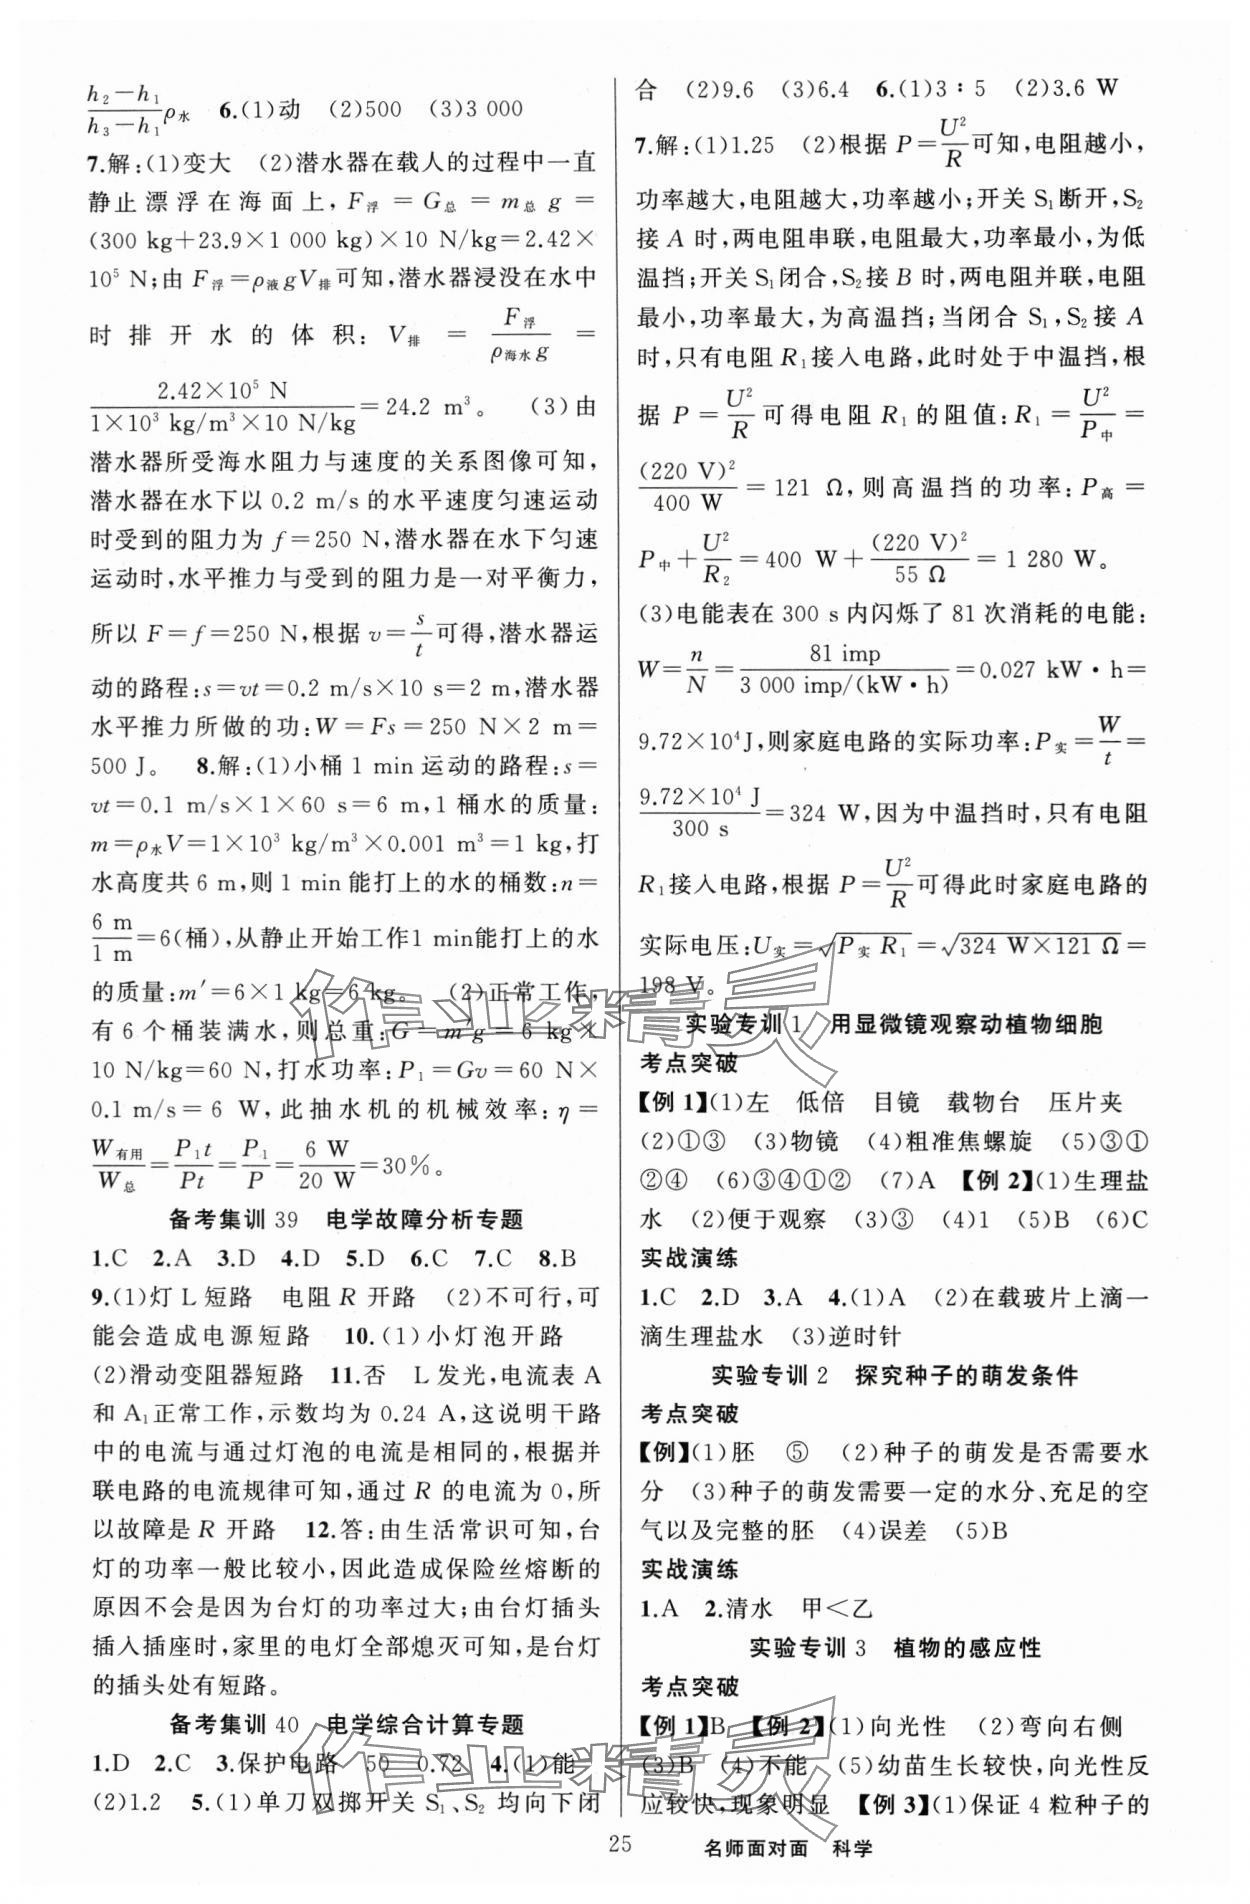 h₂－h₁/h₃－h₁ ρ水　6.(1)动　(2)500　(3)3 000
7.解:(1)变大　(2)潜水器在载人的过程中一直
静止漂浮在海面上，F浮＝G总＝m总g＝
(300 kg＋23.9×1 000 kg)×10 N/kg＝2.42×
10⁵ N;由 F浮＝ρ液gV排可知,潜水器浸没在水中
时排开水的体积：V排＝F浮/ρ海水g＝
2.42×10⁵ N/1×10³ kg/m³×10 N/kg＝24.2 m³。　(3)由
潜水器所受海水阻力与速度的关系图像可知，
潜水器在水下以 0.2 m/s 的水平速度匀速运动
时受到的阻力为 f＝250 N,潜水器在水下匀速
运动时,水平推力与受到的阻力是一对平衡力，
所以 F＝f＝250 N,根据 v＝s/t可得,潜水器运
动的路程:s＝vt＝0.2 m/s×10 s＝2 m,潜水器
水平推力所做的功:W＝Fs＝250 N×2 m＝
500 J。　8.解:(1)小桶 1 min 运动的路程:s＝
vt＝0.1 m/s×1×60 s＝6 m,1 桶水的质量:
m＝ρ水V＝1×10³ kg/m³×0.001 m³＝1 kg,打
水高度共 6 m,则 1 min能打上的水的桶数:n＝
6 m/1 m＝6(桶),从静止开始工作1 min能打上的水
的质量:m′＝6×1 kg＝6 kg。　(2)正常工作,
有 6 个桶装满水,则总重:G＝m′g＝6 kg×
10 N/kg＝60 N,打水功率:P₁＝Gv＝60 N×
0.1 m/s＝6 W,此抽水机的机械效率:η＝
W有用/W总＝P₁t/Pt＝P₁/P＝6 W/20 W＝30%。
备考集训 39　电学故障分析专题
1.C　2.A　3.D　4.D　5.D　6.C　7.C　8.B
9.(1)灯 L 短路　电阻 R 开路　(2)不可行,可
能会造成电源短路　10.(1)小灯泡开路
(2)滑动变阻器短路　11.否　L 发光,电流表 A
和 A₁正常工作,示数均为 0.24 A,这说明干路
中的电流与通过灯泡的电流是相同的,根据并
联电路的电流规律可知,通过 R 的电流为 0,所
以故障是 R 开路　12.答:由生活常识可知,台
灯的功率一般比较小,因此造成保险丝熔断的
原因不会是因为台灯的功率过大;由台灯插头
插入插座时,家里的电灯全部熄灭可知,是台灯
的插头处有短路。
备考集训 40　电学综合计算专题
1.D　2.C　3.保护电路　50　0.72　4.(1)能
(2)1.2　5.(1)单刀双掷开关 S₁、S₂ 均向下闭
合　(2)9.6　(3)6.4　6.(1)3∶5　(2)3.6 W
7.解:(1)1.25　(2)根据 P＝U²/R可知,电阻越小,
功率越大,电阻越大,功率越小;开关 S₁断开,S₂
接 A 时,两电阻串联,电阻最大,功率最小,为低
温挡;开关 S₁闭合,S₂接 B 时,两电阻并联,电阻
最小,功率最大,为高温挡;当闭合 S₁,S₂接 A
时,只有电阻 R₁接入电路,此时处于中温挡,根
据 P＝U²/R可得电阻 R₁的阻值:R₁＝U²/P中＝
(220 V)²/400 W＝121 Ω,则高温挡的功率:P高＝
P中＋U²/R₂＝400 W＋(220 V)²/55 Ω＝1 280 W。
(3)电能表在 300 s 内闪烁了 81 次消耗的电能:
W＝n/N＝81 imp/3 000 imp/(kW·h)＝0.027 kW·h＝
9.72×10⁴J,则家庭电路的实际功率:P实＝W/t＝
9.72×10⁴ J/300 s＝324 W,因为中温挡时,只有电阻
R₁接入电路,根据 P＝U²/R可得此时家庭电路的
实际电压:U实＝√P实 R₁＝√324 W×121 Ω＝
198 V。
实验专训 1　用显微镜观察动植物细胞
考点突破
【例 1】(1)左　低倍　目镜　载物台　压片夹
(2)①③　(3)物镜　(4)粗准焦螺旋　(5)③①
②④　(6)③④①②　(7)A　【例 2】(1)生理盐
水　(2)便于观察　(3)③　(4)1　(5)B　(6)C
实战演练
1.C　2.D　3.A　4.(1)A　(2)在载玻片上滴一
滴生理盐水　(3)逆时针
实验专训 2　探究种子的萌发条件
考点突破
【例】(1)胚　⑤　(2)种子的萌发是否需要水
分　(3)种子的萌发需要一定的水分、充足的空
气以及完整的胚　(4)误差　(5)B
实战演练
1.A　2.清水　甲＜乙
实验专训 3　植物的感应性
考点突破
【例 1】B　【例 2】(1)向光性　(2)弯向右侧
(3)B　(4)不能　(5)幼苗生长较快,向光性反
应较快,现象明显　【例 3】(1)保证 4 粒种子的
25　名师面对面　科学
作业精灵
作业精灵